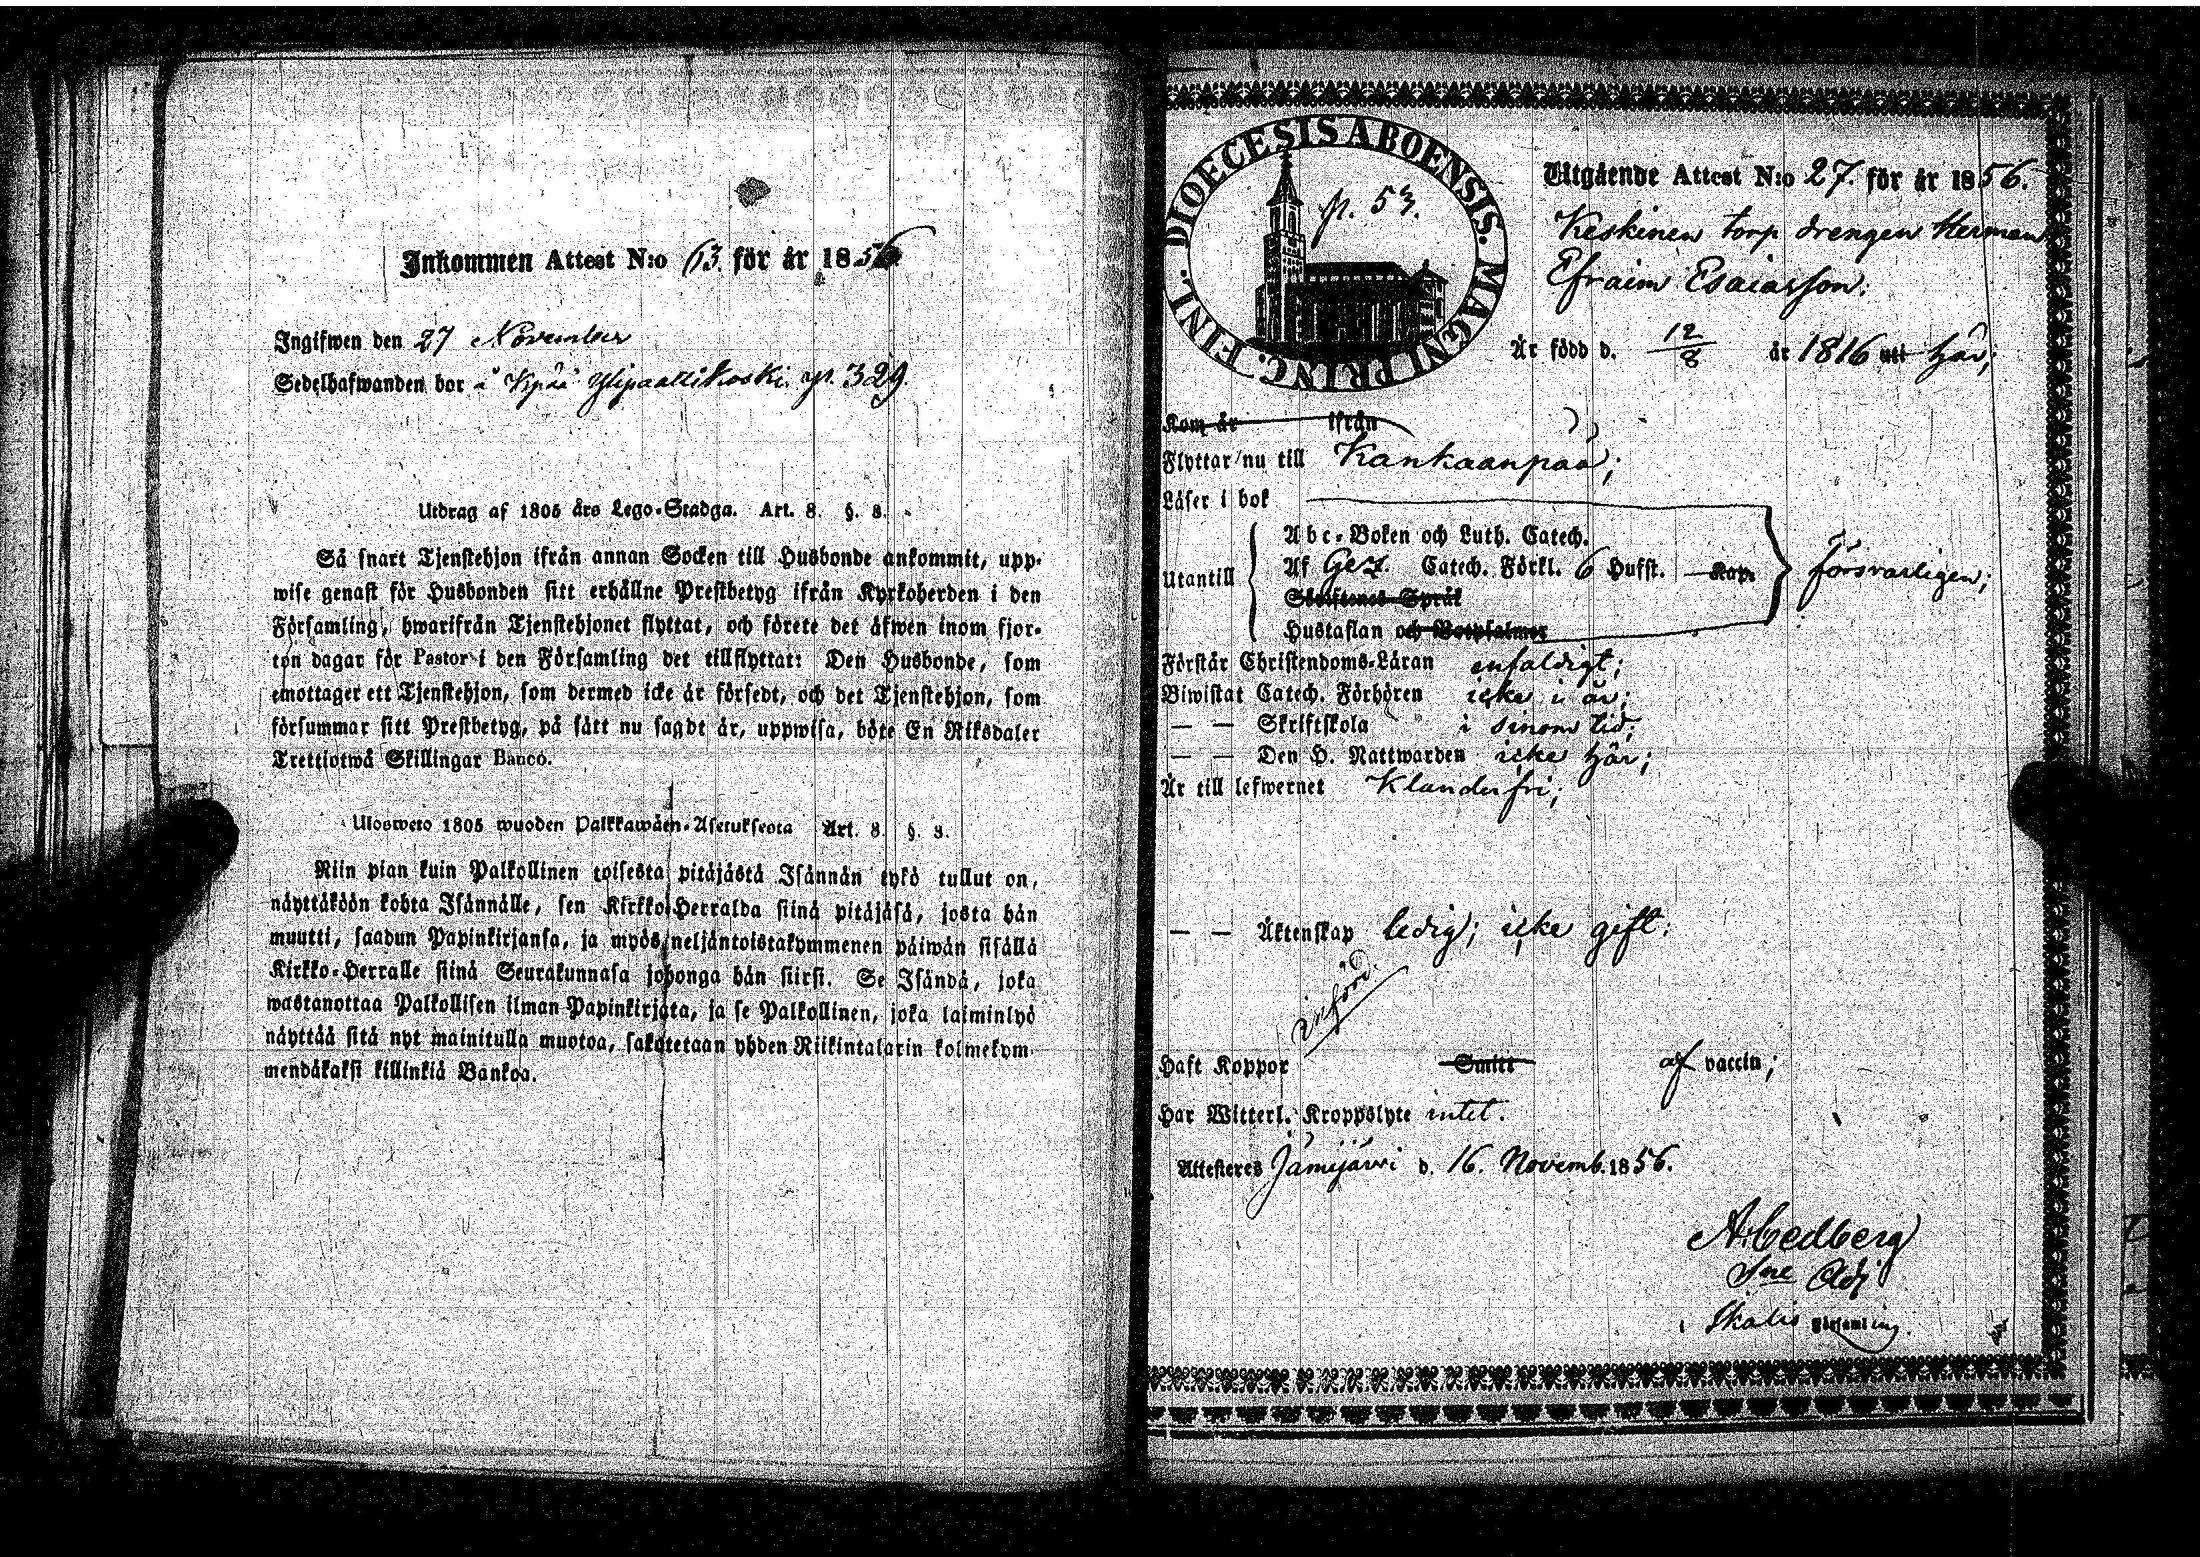 Inkommen Attest N:o 63. för år 1856
Ingifwen den 27 November
Sedelhafwanden bor å Kpää Ylipaattikoski. p. 329.
Utdrag af 1805 års Lego-Stadga. Art. 8. §. 8.
Så snart Tjenstehjon ifrån annan Socken till Husbonde ankommit, upp-
wise genast för Husbonden sitt erhållne Prestbetyg ifrån Kyrkoherden i den
Församling, hwarifrån Tjenstehjonet flyttat, och förete det äfwen inom fjor-
ton dagar för Pastor i den Församling det tillflyttat: Den Husbonde, som
emottager ett Tjenstehjon, som dermed icke är försedt, och det Tjenstehjon, som
försummar sitt Prestbetyg, på sätt nu sagdt är, uppwisa, böte En Riksdaler
Trettiotwå Skillingar Banco.
Ulosweto 1805 wuoden Palkkawäen-Asetuksesta Art. 8. §. 8.
Niin pian kuin Palkollinen toisesta pitäjästä Isännän tykö tullut on,
näyttäköön kohta Isännälle, sen Kirkko-Herralda siinä pitäjäsä, josta hän
muutti, saadun Papinkirjansa, ja myös neljäntoistakymmenen päiwän sisällä
Kirkko-Herralle siinä Seurakunnasa johonga hän siirsi. Se Isändä, joka
wastanottaa Palkollisen ilman Papinkirjata, ja se Palkollinen, joka laiminlyö
näyttää sitä nyt mainitulla muotoa, sakotetaan yhden Riikintalarin kolmekym-
mendäkaksi killinkiä Bankoa.
DIOECESIS ABOENSIS. MAGNI PRINC. FINL.
p. 53.
Utgående Attest N:o 27. för år 1856.
Keskinen torp drengen Herman
Efraim Esaiasson.
Är född d. 12/8 år 1816 uti här;
Kom år ifrån
Flyttar nu till Kankaanpää;
Läser i bok
Abc-Boken och Luth. Catech.
Utantill Af Gez. Catech. Förkl. 6 Hufst. Kap. försvarligen;
Skriftenes Språk
Hustaflan och Botpsalmer
Förstår Christendoms-Läran enfaldigt;
Biwistat Catech. Förhören icke i år;
— — Skriftskola i sinom tid;
— — Den H. Nattwarden icke här;
Är till lefwernet Klanderfri;
— — Äktenskap ledig; icke gift:
införd.
Haft Koppor Smitt af vaccin;
Har Witterl. Kroppslyte intet.
Attesteras Jämijärvi d. 16. Novemb. 1856.
A. Cedberg
Sne Adj
i Ikalis Församling.